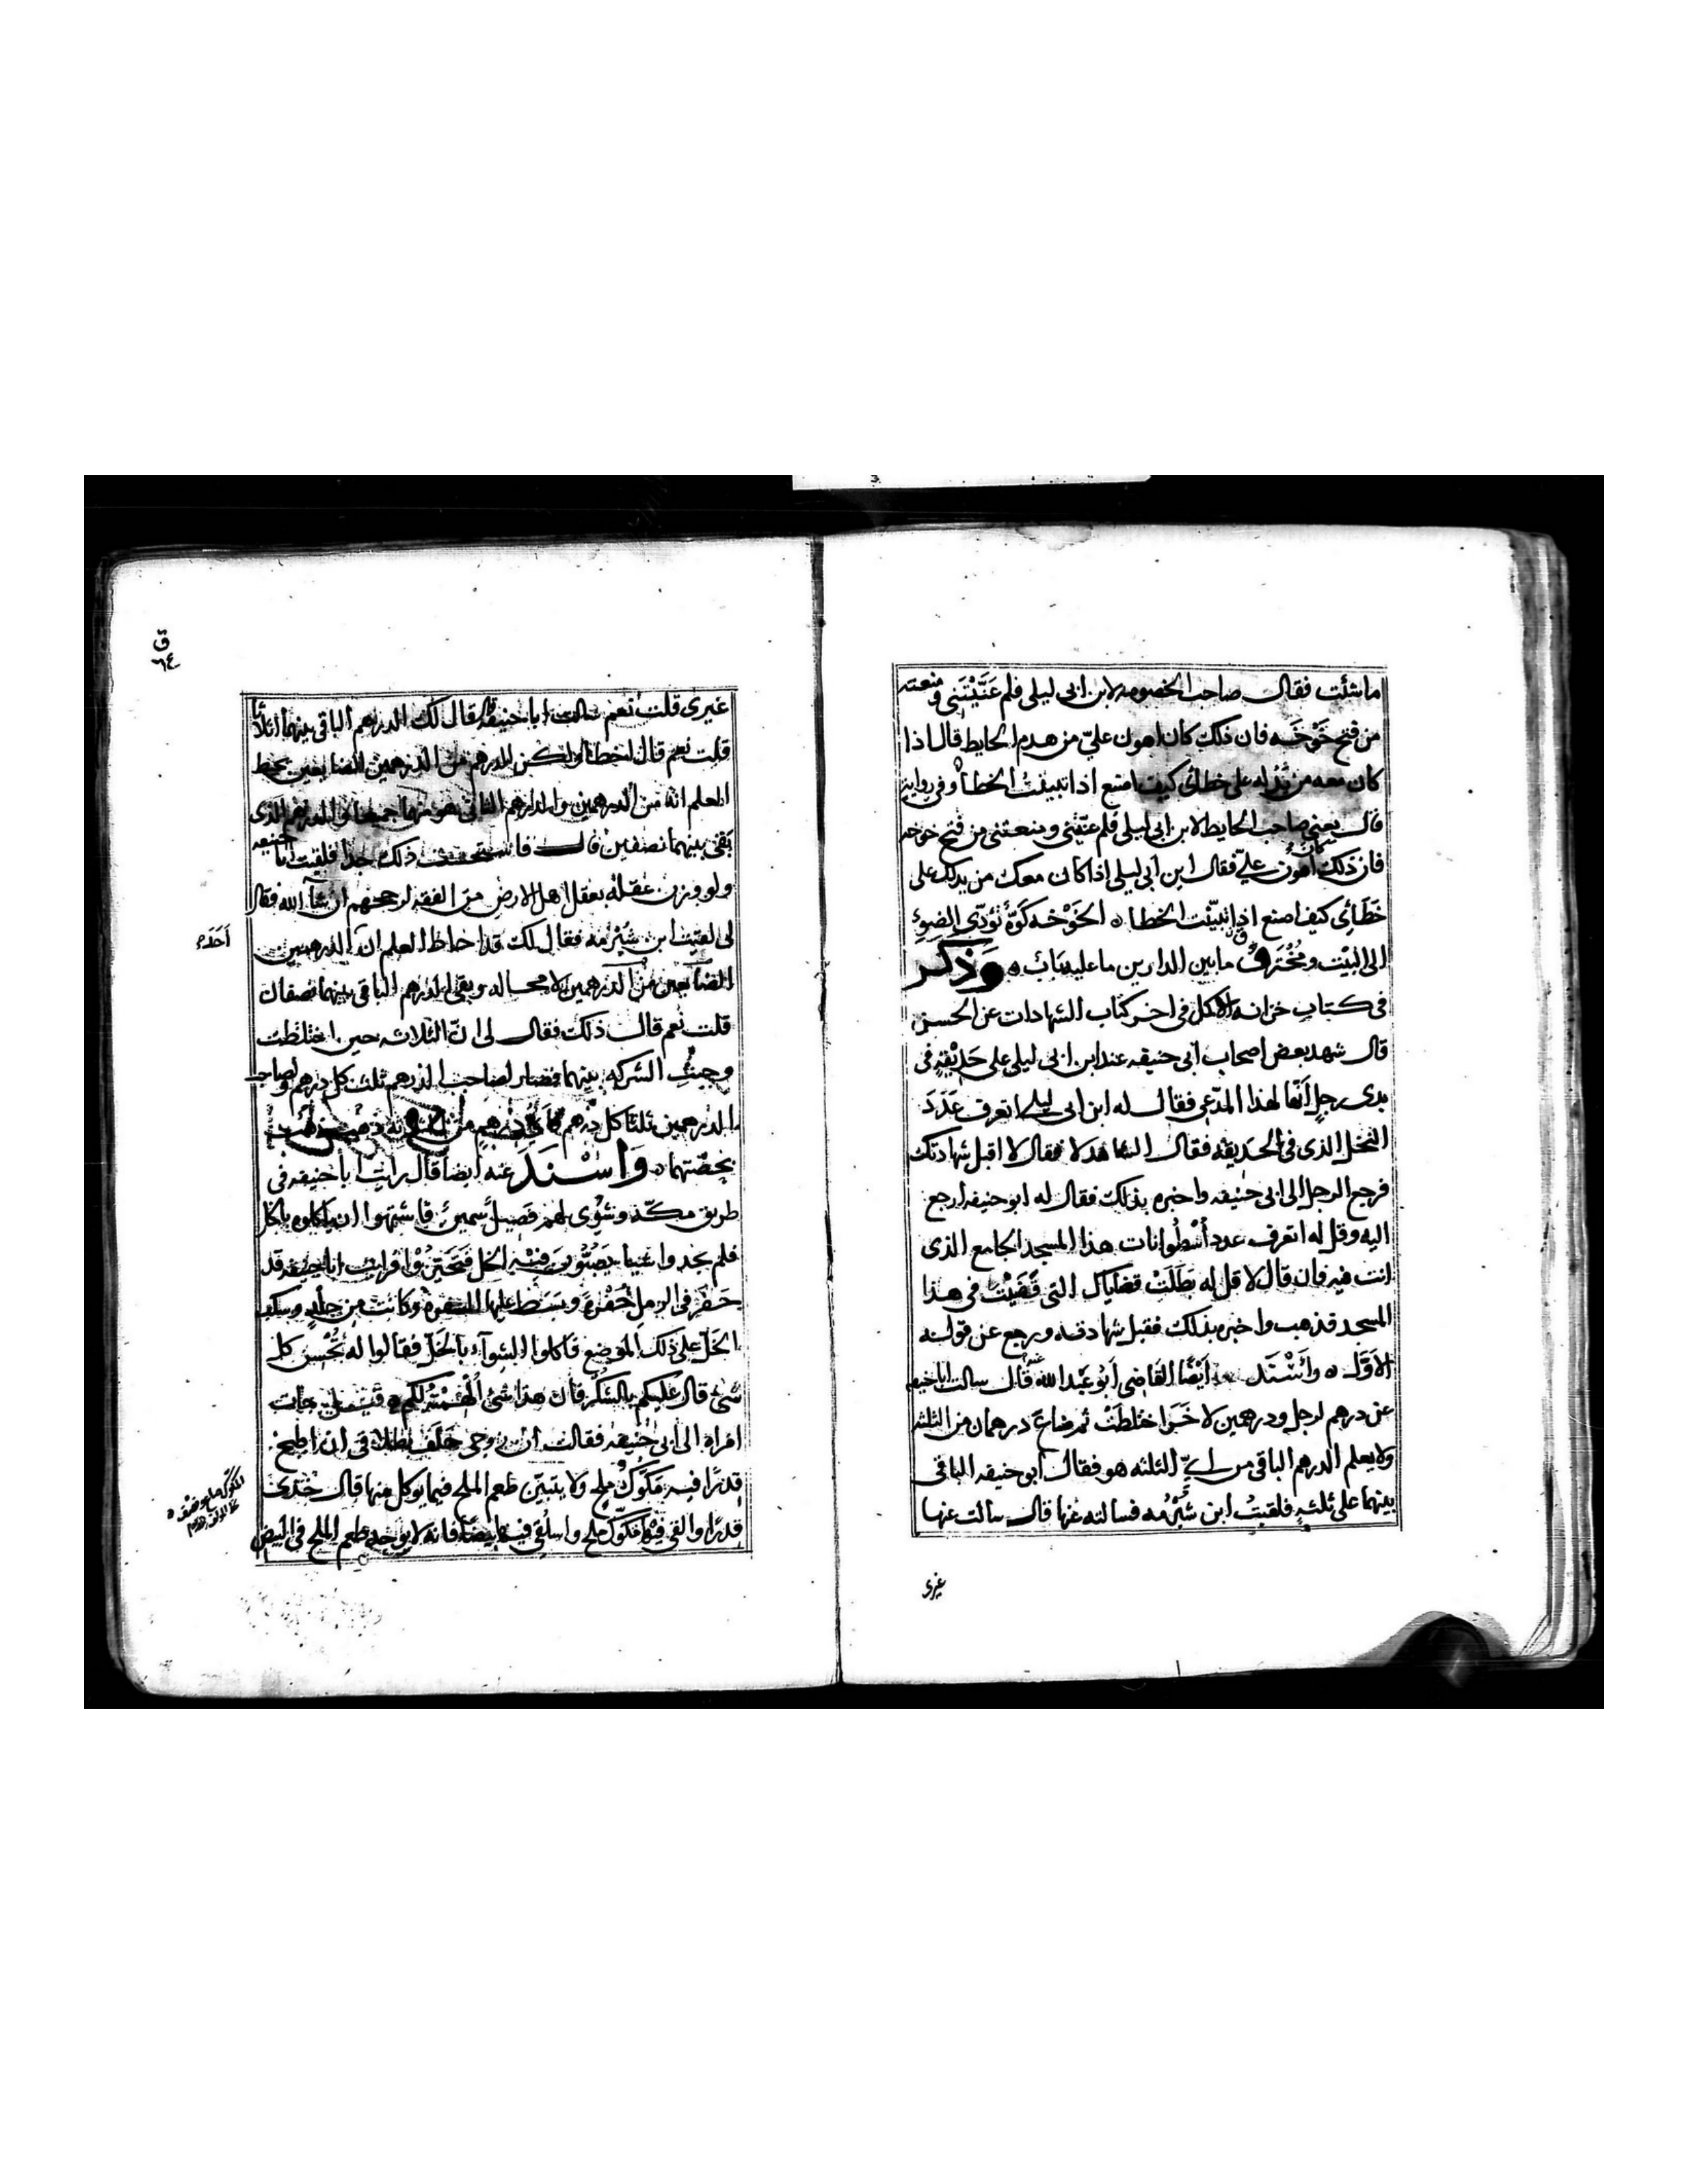 ما شئت فقال صاحب الخصومه لابن ابى ليلى فلم عَنَّيْتَنى ومنعته
من فتح خَوْخَه فان ذلك كان اهون علىّ من هدم الحايط قال اذا
كان معه من يدله على خطائى كيف اصنع اذا تبينت الخطا وفى روايه
قال يعنى صاحب الحايط لابن ابى ليلى فلم عنّيتنى ومنعتنى من فتح خوخه
فان ذلك كان اهون علىّ فقال ابن ابى ليلى اذا كان معك من يدلك على
خَطَائى كيف اصنع اذا تبيّنت الخطا ه الخَوْخه كَوّة تؤدّى الضوء
الى البيْت ومُخْتَرَق ما بين الدارين ما عليه باب ه وَذكر
فى كتاب خزانه الاكمل فى اخر كتاب الشهادات عن الحسن
قال شهد بعض اصحاب ابى حنيفه عند ابن ابى ليلى على حَدِيْقه فى
يدى رجل انّها لهذا المدّعى فقال له ابن ابى ليلى اتعرف عَدَدَ
النخل الذى فى الحديقه فقال الشاهد لا فقال لا اقبل شهادتك
فرجع الرجل الى ابى حنيفه واخبره بذلك فقال له ابو حنيفه ارجع
اليه وقل له اتعرف عدد أُسْطُوانات هذا المسجد الجامع الذى
انت فيه فان قال لا قل له بَطَلَتْ قضاياك التى قَضَيْتَ فى هذا
المسجد فذهب واخبره بذلك فقبل شهادته ورجع عن قوله
الاَوّل ه وأسْنَد أيضًا القَاضى أبُو عَبد الله قال سالت ابا حنيفه
عن درهم لرجل ودرهمين لاخَر اختلطَتْ ثم ضاعَ درهمان من الثلثه
ولا يعلم الدرهم الباقى من اىّ الثلثه هو فقال ابو حنيفه الباقى
بينهما على ثلثه فلقيتُ ابن شُبْرُمه فسالته عنها قال سالت عنها
غيرى
ق
٦٤
غيرى قلت نعم سالت ابا حنيفه فقال لك الدرهم الباقى بينهما اثلاثًا
قلت نعم قال اخطا ولكن الدرهم من الدرهمين الضايعين يحيط
العلم انه من الدرهمين والدرهم الثانى هو منهما جميعا والدرهم الذى
بقى بينهما نصفين قال فاستحسنت ذلك جدا فلقيت ابا حنيفه
ولو وزن عقله بعقل اهل الارض من الفقه لرجحهم ان شآ الله فقال
لى لقيت ابن شُبْرُمه فقال لك قد احاط العلم انّ الدرهمين
اَحَدَ
الضايعين من الدرهمين لا محاله وبقى الدرهم الباقى بينهما نصفان
قلت نعم قال ذلك فقال لى انّ الثلاثه حين اختلطت
وجبتْ الشركه بينهما فصار لصاحب الدرهم ثلث كل درهم ولصاحب
الدرهمين ثلثا كل درهم فاىّ درهم ذهب
بحصّتهما ه وَاَسْنَدَ عنه ايضا قال رايت ابا حنيفه فى
طريق مكّه وشُوِى لهم فَصِيل سمين فاشتهوا ان ياكلوه بالخل
فلم يجدوا شيا يَصُبّونَ فيه الخل فتحيّروا فرايت ابا حنيفه قد
حفر فى الرمل حُفْرة وبسَط عليها السفرة وكانت من جلد وسكب
الخلّ على ذلك الموضع فاكلوا الشوآء بالخلّ فقالوا له تُحْسِن كل
شئ قال عليكم بالشكر فان هذا شئ اُلْهِمْتُه لكم وقيل جات
امراه الى ابى حنيفه فقالت ان زوجى حَلَف بطلاقى ان اطبخ
قدرًا فيه مَكّوكُ ملح ولا يتبيّن طعم الملح فيما يوكل منها قال خذى
المكّوك صاع ونصف ه
قدرًا والقى فيْها مَكّوك ملح واسلُقى فيها بيضًا فانه لا يوجد طعم الملح فى البيض